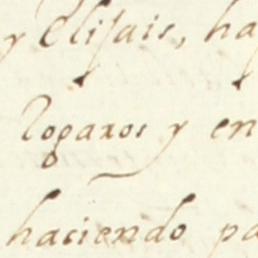 y Elisais, ha
Logaros y en
haciendo pa